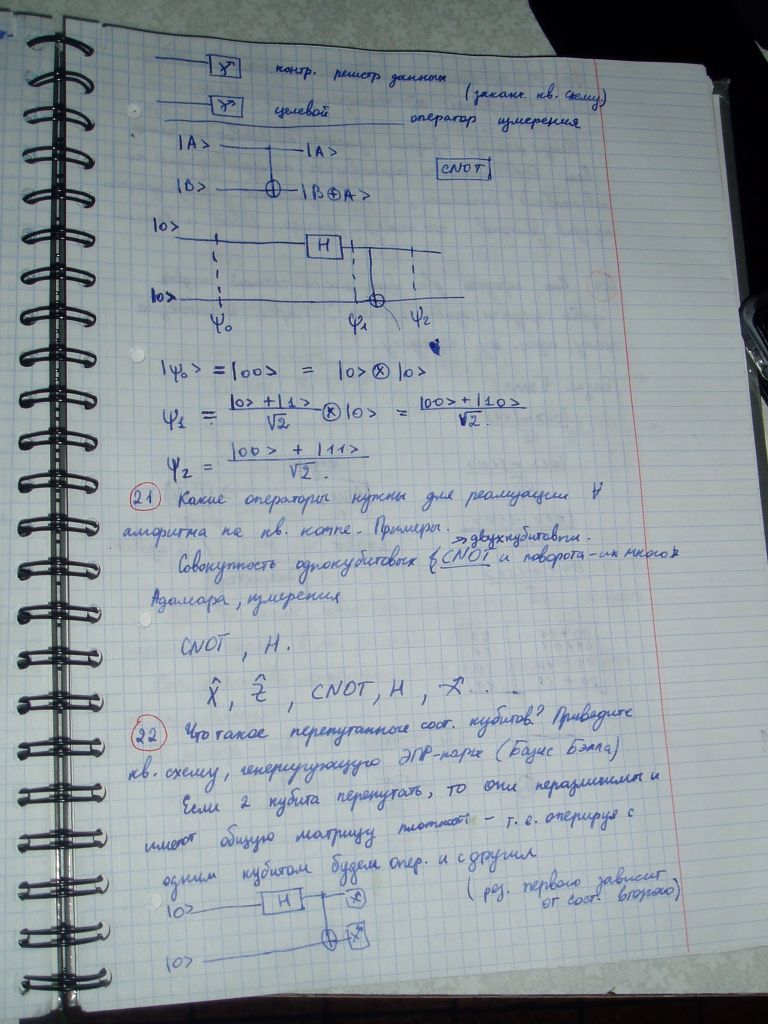 контр. регистр данных
(заканч. кв. схему)
целевой оператор измерения
|A> |A>
CNOT
|B> |B⊕A>
|0> H
|0>
ψ₀ ψ₁ ψ₂
|ψ₀> = |00> = |0> ⊗ |0>
ψ₁ = |0> + |1> / √2 ⊗ |0> = |00> + |10> / √2.
ψ₂ = |00> + |11> / √2.
21 Какие операторы нужны для реализации ∀
алгоритма на кв. компе. Примеры.
→ двухкубитовый.
Совокупность однокубитовых { CNOT и поворота - их много
Адамара, измерения
CNOT, H.
X̂, Ẑ, CNOT, H,
22 Что такое перепутанные сост. кубитов? Приведите
кв. схему, генерирующую ЭПР-пары (Базис Бэлла)
Если 2 кубита перепутать, то они неразличимы и
имеют общую матрицу плотности - т.е. оперируя с
одним кубитом будем опер. и с другим
(рез. первого зависит
от сост. второго)
|0> H
|0>